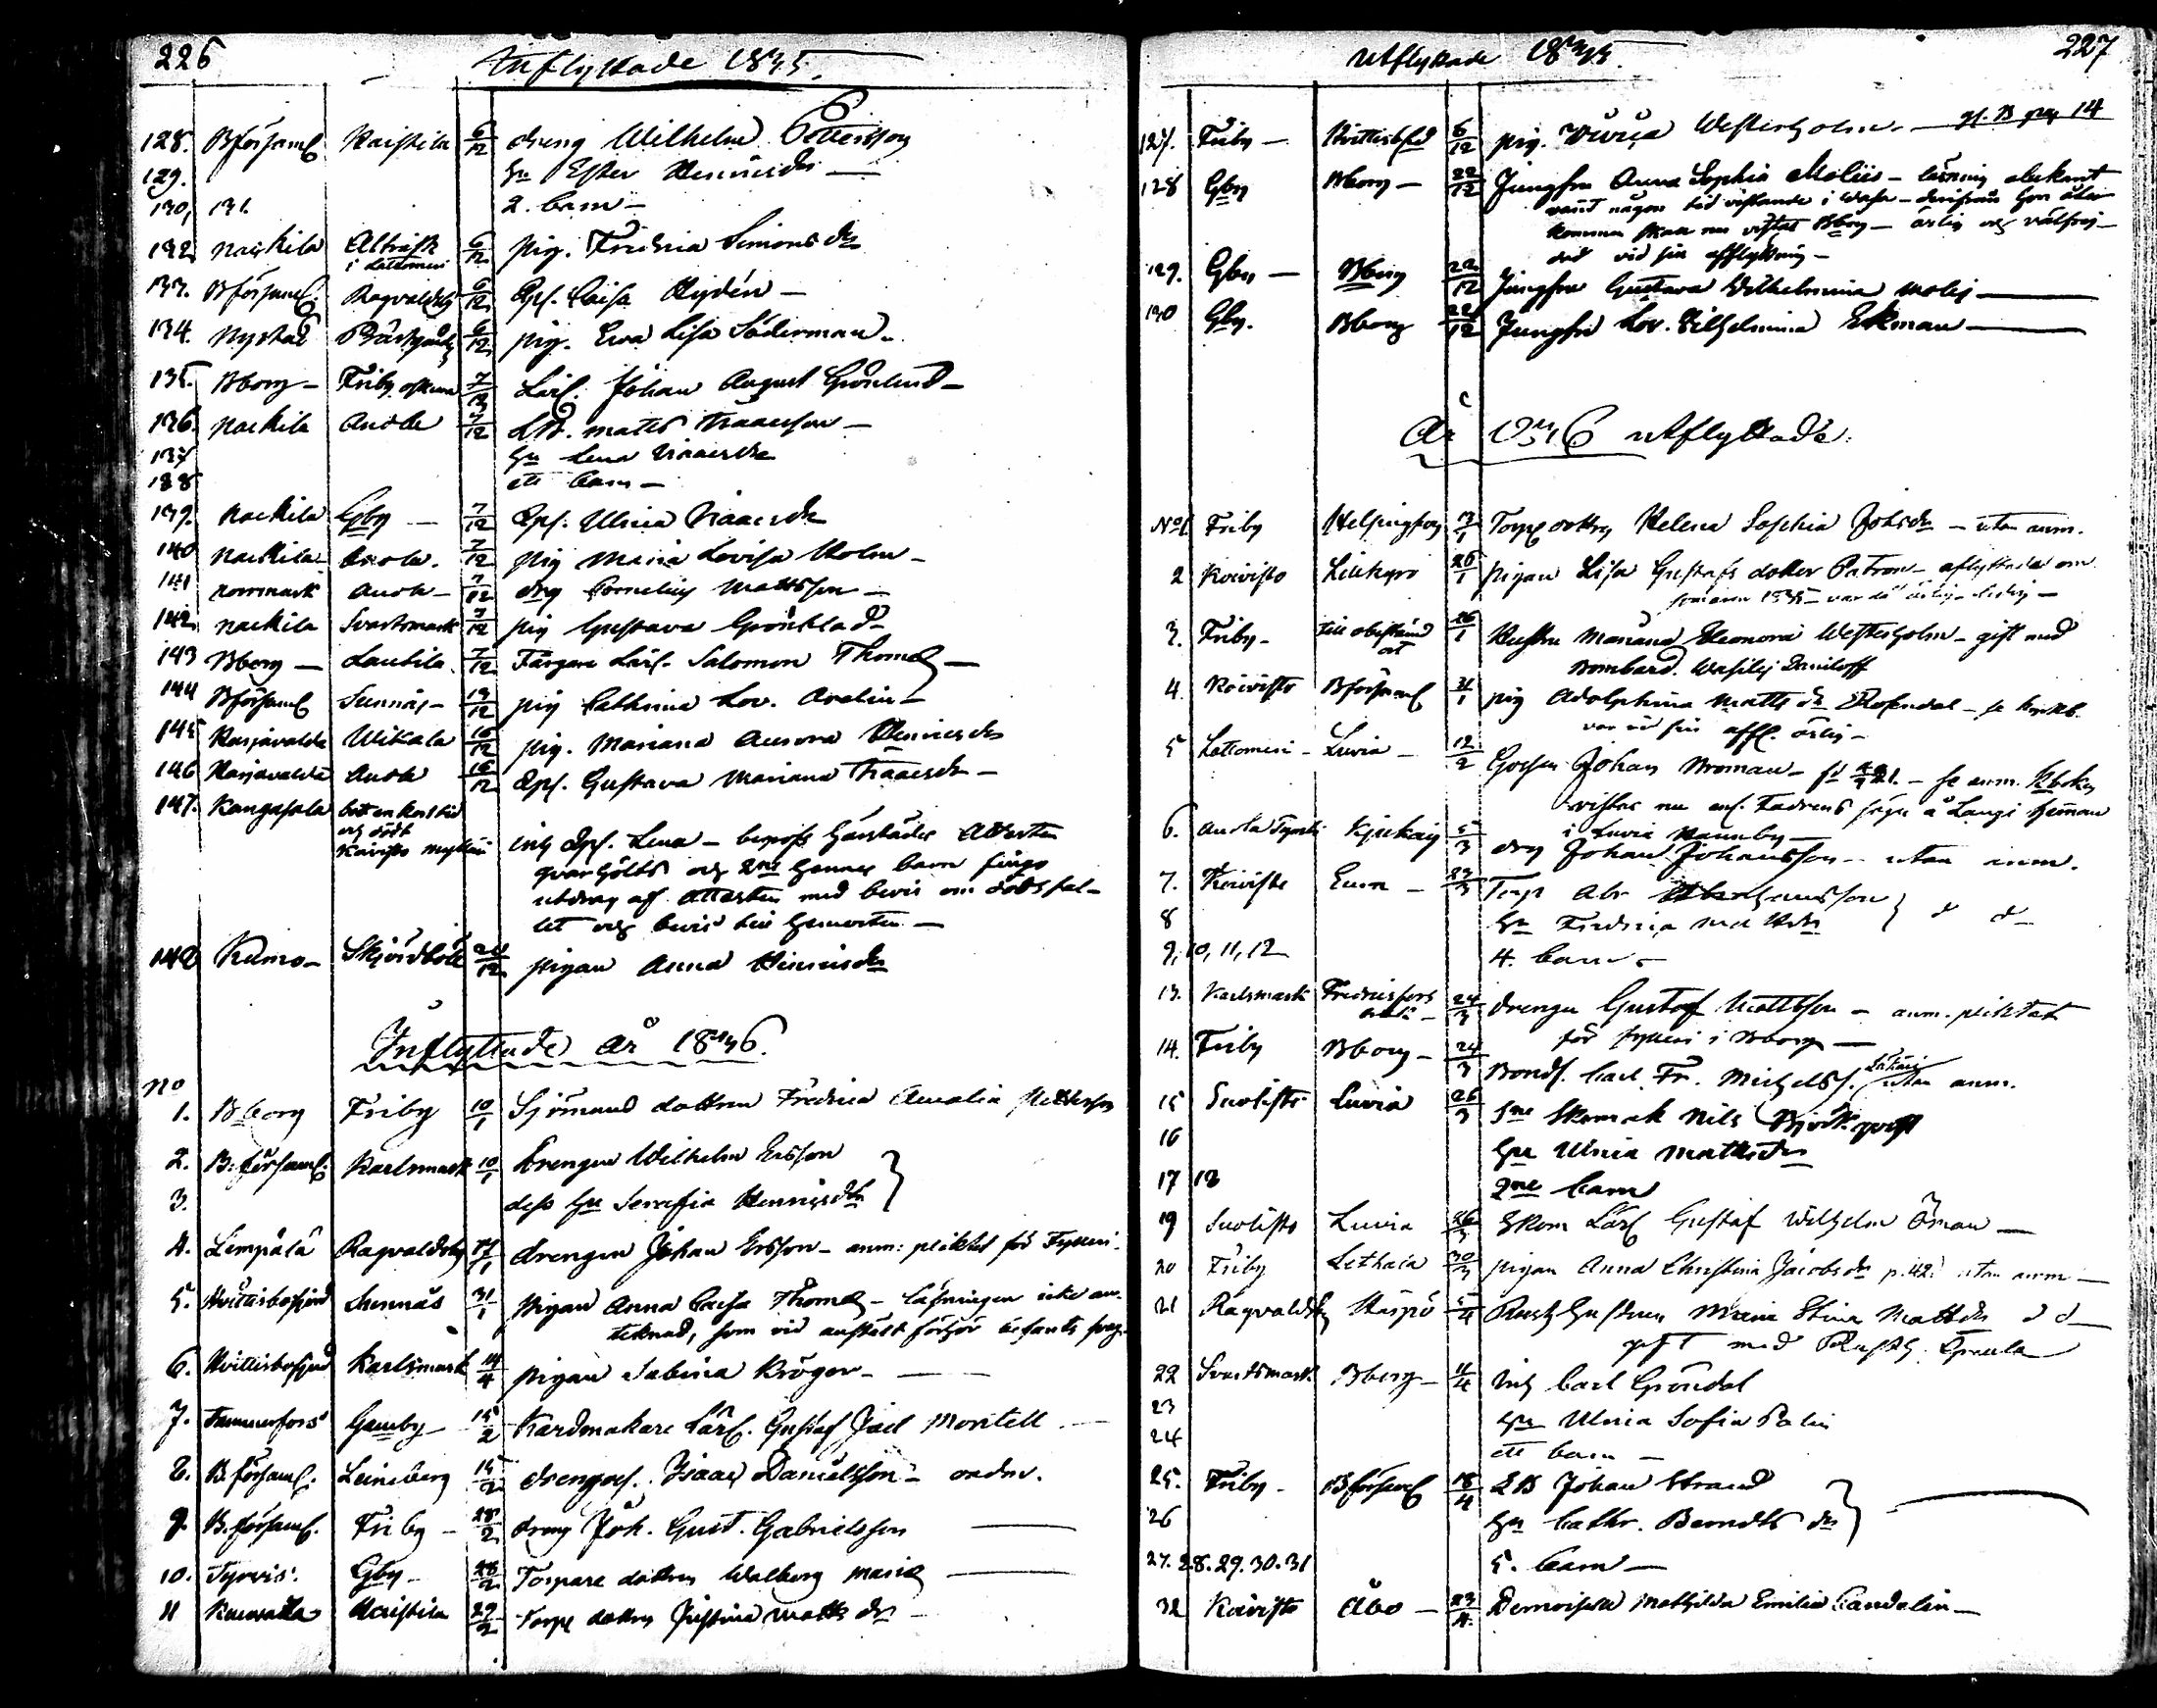 226
Inflyttade 1845.
128. Bförsaml Haistila 6/12 dreng Wilhelm Pettersson
129. hu Ester Henricsdr —
130, 131. 2. barn —
132 Nackila Alträsk i Lattomeri 6/12 pig. Fredrica Simonsdr
133. Bförsaml. Ragvaldsby 6/12 Caisa Hydén —
134. Nystad Prästgård 6/12 pig. Ewa Lisa Söderman.
135. Bborg — Friby 7/12 Lärl. Johan August Grönlund —
136. Nackila Anola 7/12 matts Isaacsson —
137 hu Lena Isaacsdr
138 ett barn —
139. Nackila Gby — 7/12 Ulrica Isaacsdr
140 Nackila Anola. 7/12 pig Maria Lovisa Holm —
141 Norrmark Anola — 7/12 drg Cornelius Mattsson —
142 Nackila Svartsmark 7/12 pig Gustava Grönblad —
143 Bborg — Lautila 7/12 Färgare Lärl. Salomon Thomé —
144 Bförsaml Sunnäs — 13/12 pig Cathrina Lov. Avelin —
145 Harjavalda Wikala 16/12 pig. Mariana Aurora Henricsdr
146 Harjavalda Anola 16/12 Gustava Mariana Isaacsdr —
147. Kangasala Koivisto Lena —
qvarhölts och 2ne hennes barn fingo
utdrag af attesten med bevis om dödsfal-
let och bevis
148 Kumo — Skjördbole 24/12 pigan Anna Henricsdr
Inflyttade år 1846.
No
1. Bborg Friby 10/1 Sjömans dottren Fredrica Amalia Pettersson
2. B. församl. Karlsmark 10/1 Drengen Wilhelm Ersson
3. dess hu Serafia Henricsdr
4. Lempälä Ragvaldsby 17/1 drengen Johan Ersson — anm: pliktat för Fylleri.
5. Hvittisbofjerd Sunnäs 31/1 pigan Anna Caisa Thomé — läsningen icke an-
teknad, som vid anstäldt förhör befants svag.
6. Hvittisbofjerd Karlsmark 14/4 pigan Sabina Kröger —
7. Tammerfors Gamby — 15/2 Kardmakare Lärl. Gustaf Joel Montell —
8. B. församl. Leineberg 15/2 Isaac Danielsson —
9. B. församl. Friby — 28/2 dreng Joh. Gust. Gabrielsson —
10. Tyrvis. Gby — 28/2 Torpare dottren Walborg Maria —
11 Kumo Haistila 29/2 Torp dottren Justina Mattsdr —
Utflyttade 1845.
227
127. Friby — Hvittisbfd 6/12 pig. Ulrica Westerholm — pag 14
128 Gby Bborg — 22/12 Jungfru Anna Sophia Moliis — läsning obekant
varit någon tid vistande i Wasa — derifrån hon åter
kommen nu vistas Bborg — ärlig och välfrej-
dad vid sin afflyttning —
129. Gby — Bborg 22/12 Jungfru Gustava Wilhelmina Moliis —
130 Gby. Bborg 22/12 Jungfru Lov. Wilhelmina Ekman —
År 1846 utflyttade.
No1. Friby Helsingfors 13/1 Torp dottren Helena Sophia Johsdr — utan anm.
2 Koivisto Lillkyro 26/1 pigan Lisa Gustafs dotter Patron — afflyttade om
sommaren 1845 — var då ärlig — ledig —
3. Friby — till obestämd ort 26/1 Hustru Mariana Eleonora Westerholm — gift med
Bombard. Wasilij Daniloff
4. Koivisto Bförsaml 31/1 pig Adolphina Matts dr Rosendal —
var vid sin affl. ärlig —
5 Lattomeri — Luvia — 12/2 Gossen Johan Broman — se anm.
vistas nu å Langi hemman
i Luvia
6. Anola Kjukais 5/3 drg Johan Johansson — utan anm.
7. Koivisto Eura — 23/3 Torp Abr Abrahamsson
8 hu Fredrica Mattsdr d d
9, 10, 11, 12 4. barn —
13. Karlsmark Fredricsfors 24/3 drengen Gustaf Mattsson — anm. pliktat
för fylleri i Bborg —
14. Friby Bborg — 24/3 Bonds. Carl Fr. Michelss. utan anm.
15 Suolisto Luvia 26/3 Skomak Nils Björkqvist
16 hu Ulrica Mattsdr
17 18 2ne barn
19 Suolisto Luvia 26/3 Skom Lärl Gustaf Wilhelm Öman —
20 Friby Lethala 30/3 pigan Anna Christina Jacobsdr p. 42. utan anm —
21 Ragvaldsby 5/4 Maria Stina Mattsdr d d —
gift med
22 Svartsmark Bborg — 11/4 Carl Gröndal
23 hu Ulrica Sofia Palin
24 ett barn —
25. Friby — Bförsaml 18/4 Johan Strand
26 hu Cathr. Berndts dr
27. 28. 29. 30. 31 5. barn —
32 Koivisto Åbo — 23/4 Demoiselle Mathilda Emilia Candelin —